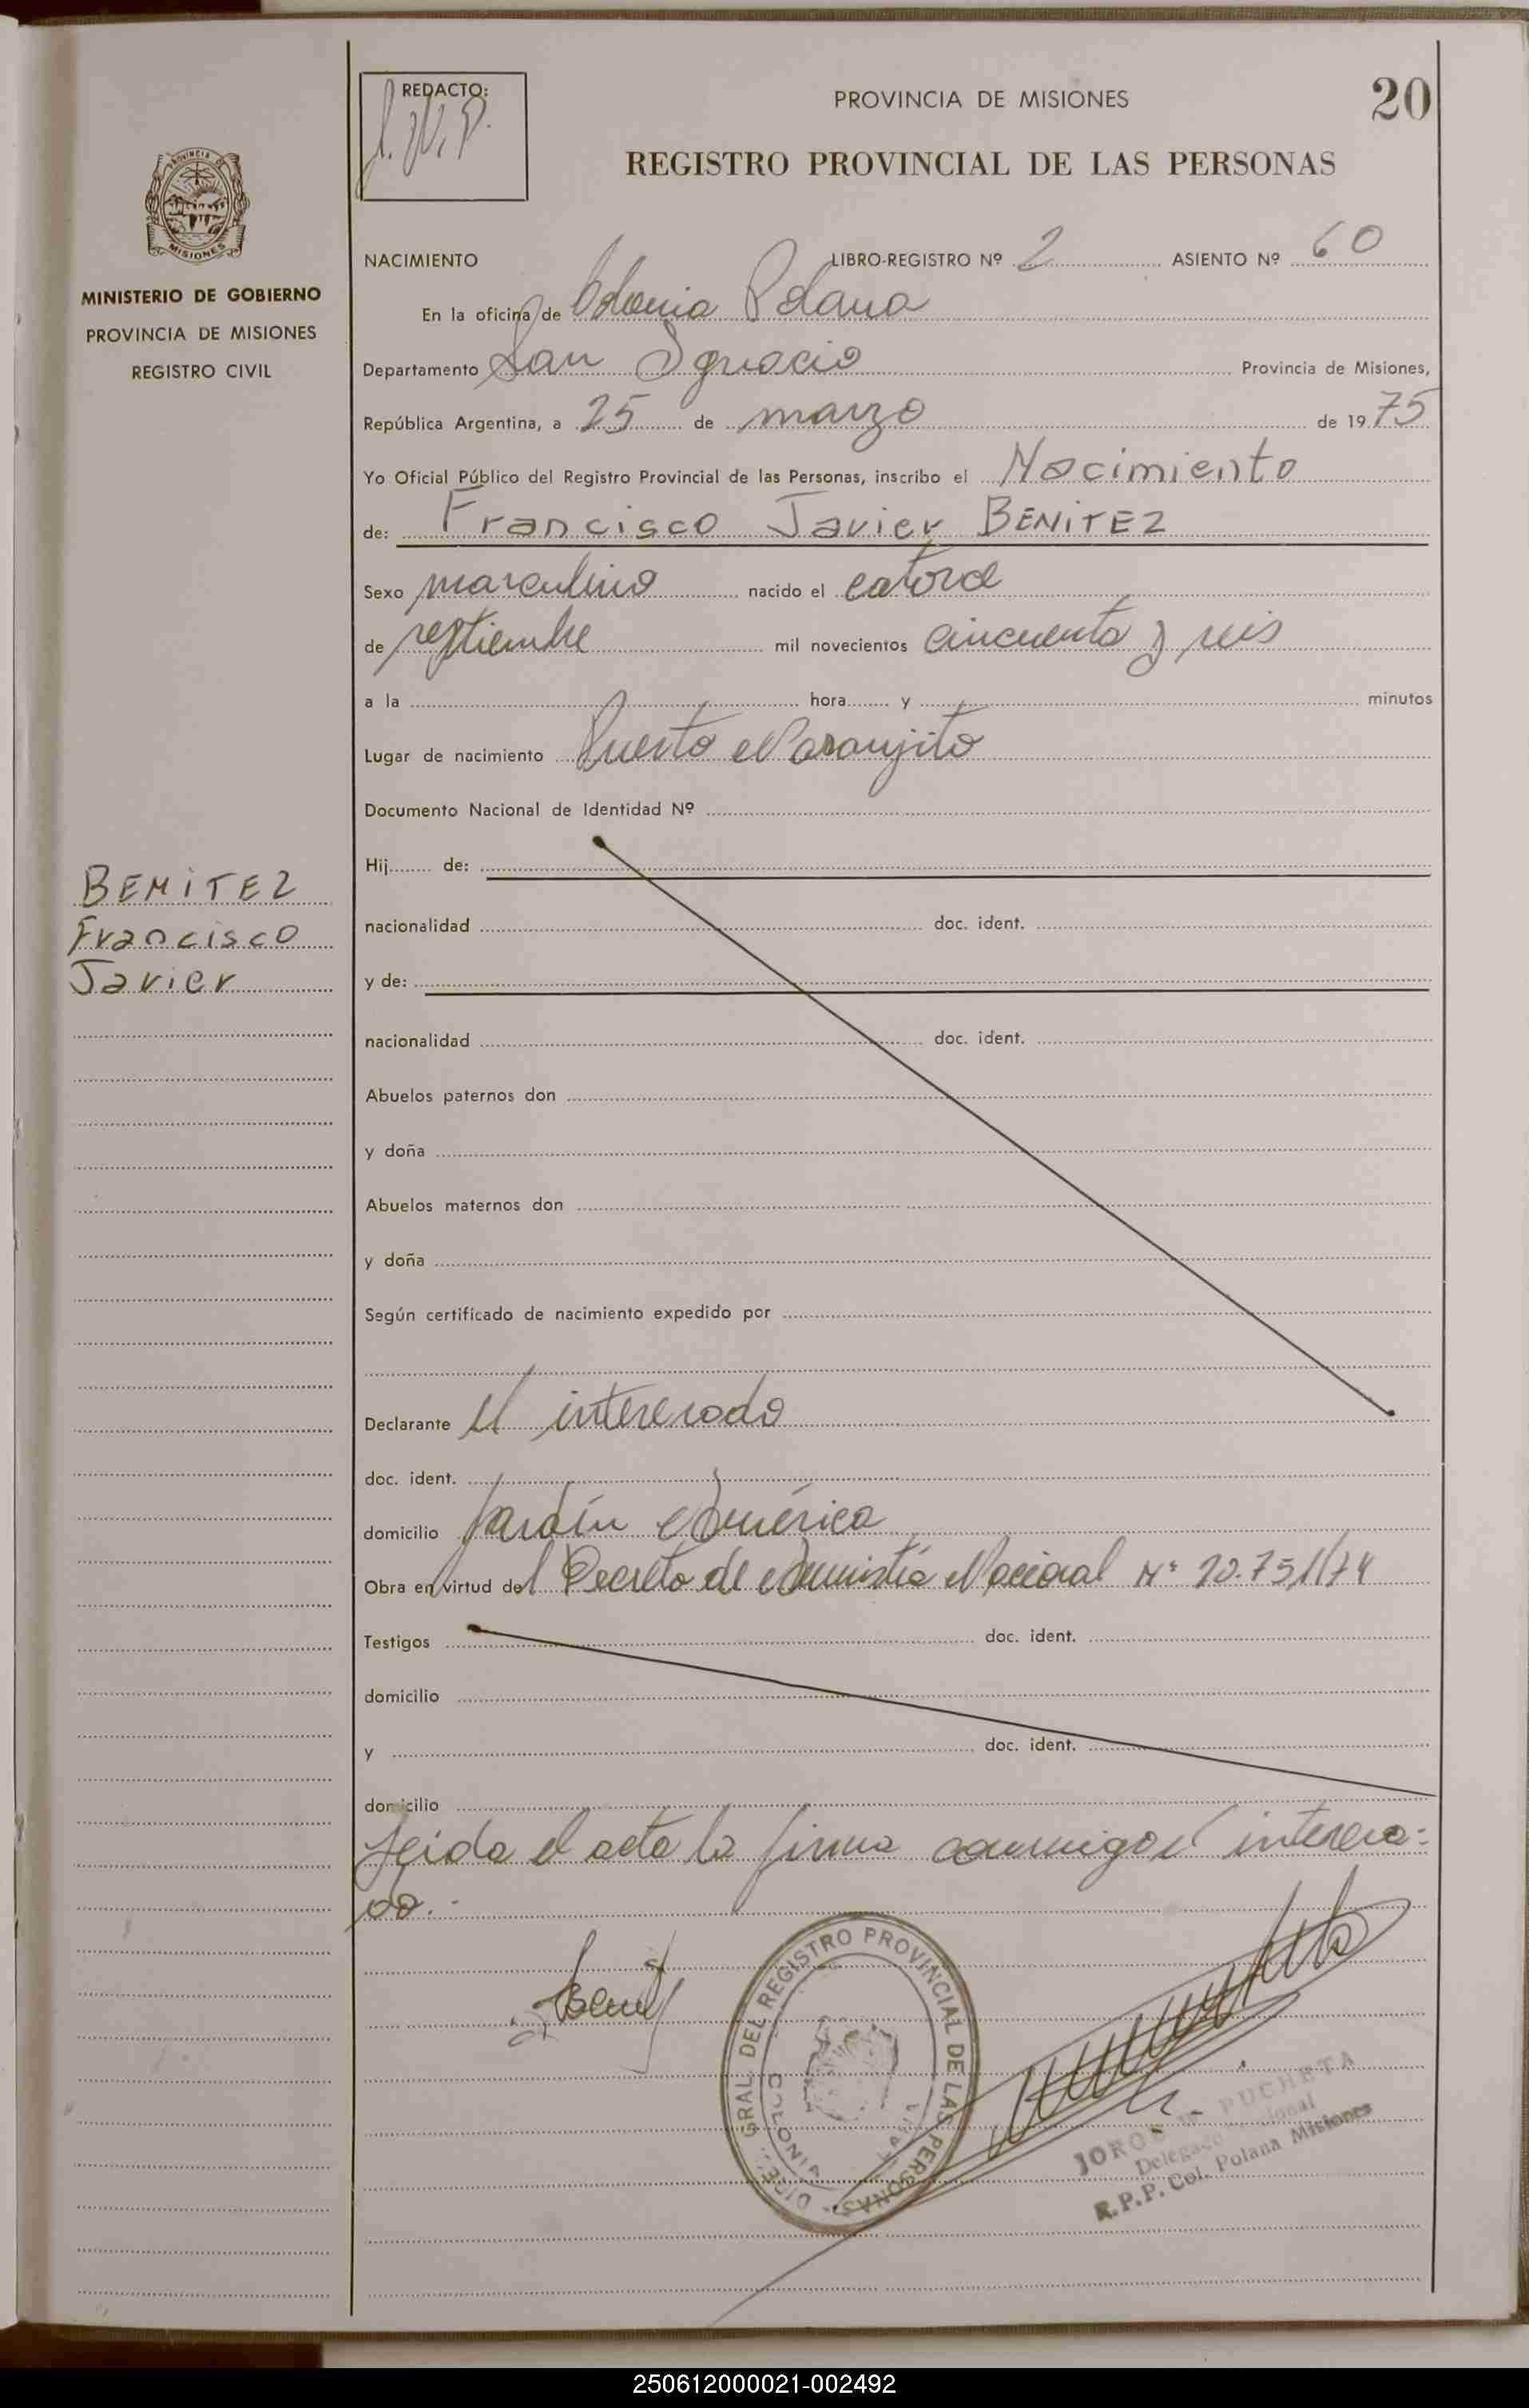 REDACTO:
PROVINCIA DE MISIONES
20
REGISTRO PROVINCIAL DE LAS PERSONAS
PROVINCIA DE
MISIONES
MINISTERIO DE GOBIERNO
PROVINCIA DE MISIONES
REGISTRO CIVIL
NACIMIENTO LIBRO-REGISTRO Nº 2 ASIENTO Nº 60
En la oficina de Colonia Polana
Departamento San Ignacio Provincia de Misiones,
República Argentina, a 25 de marzo de 1975
Yo Oficial Público del Registro Provincial de las Personas, inscribo el Nacimiento
de: Francisco Javier BENITEZ
Sexo masculino nacido el catorce
de septiembre mil novecientos cincuenta y seis
a la hora y minutos
Lugar de nacimiento Puerto Naranjito
Documento Nacional de Identidad Nº
Hij de:
BENITEZ
Francisco
Javier
nacionalidad doc. ident.
y de:
nacionalidad doc. ident.
Abuelos paternos don
y doña
Abuelos maternos don
y doña
Según certificado de nacimiento expedido por
Declarante El interesado
doc. ident.
domicilio Jardín América
Obra en virtud del Decreto de Amnistía Nacional Nº 20.751/74
Testigos doc. ident.
domicilio
y doc. ident.
domicilio
Leida el acta la firma conmigo el interesa-
do.
DIRE. GRAL. DEL REGISTRO PROVINCIAL DE LAS PERSONAS
COLONIA
PUCHETA
R.P.P. Col. Polana Misiones
250612000021-002492